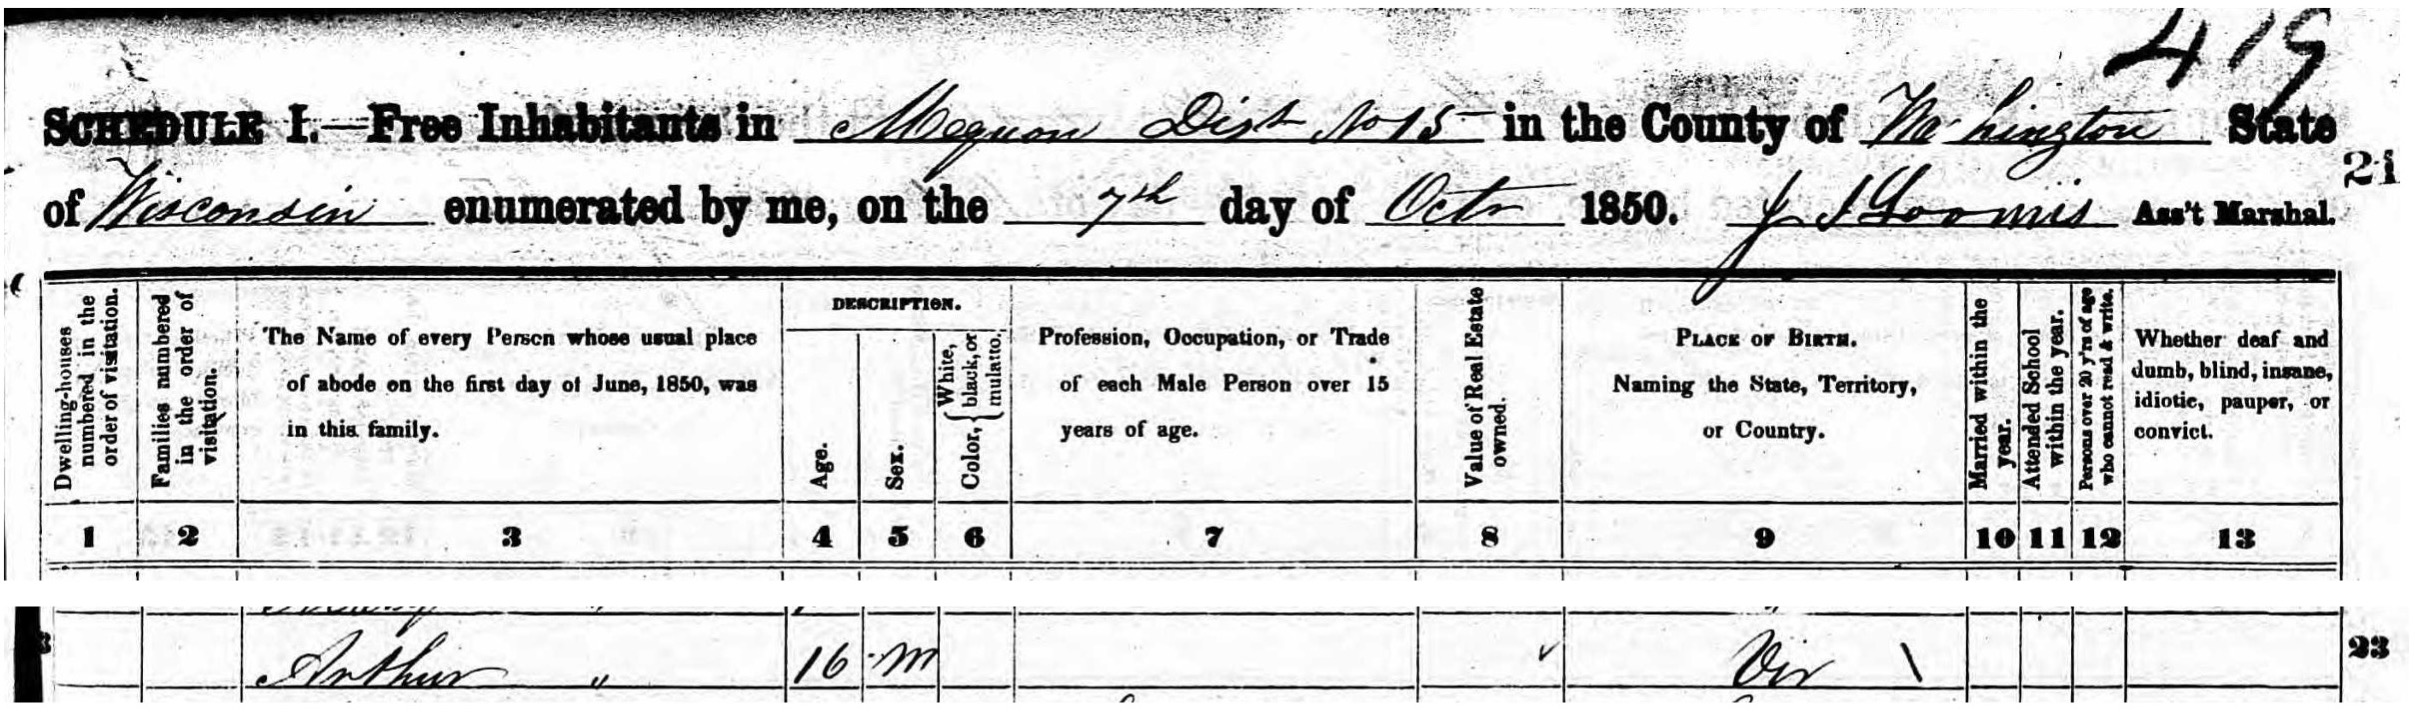 419
SCHEDULE I.—Free Inhabitants in Mequon Dist No 15 in the County of Washington State
21
of Wisconsin enumerated by me, on the 7th day of Octr 1850. J J Loomis Ass't Marshal.
Dwelling-houses numbered in the order of visitation.
Families numbered in the order of visitation.
The Name of every Person whose usual place
of abode on the first day of June, 1850, was
in this family.
DESCRIPTION.
Age.
Sex.
Color, { White, black, or mulatto.
Profession, Occupation, or Trade
of each Male Person over 15
years of age.
Value of Real Estate owned.
PLACE OF BIRTH.
Naming the State, Territory,
or Country.
Married within the year.
Attended School within the year.
Persons over 20 y'rs of age who cannot read & write.
Whether deaf and
dumb, blind, insane,
idiotic, pauper, or
convict.
1 2 3 4 5 6 7 8 9 10 11 12 13
Arthur " 16 M Vir 23